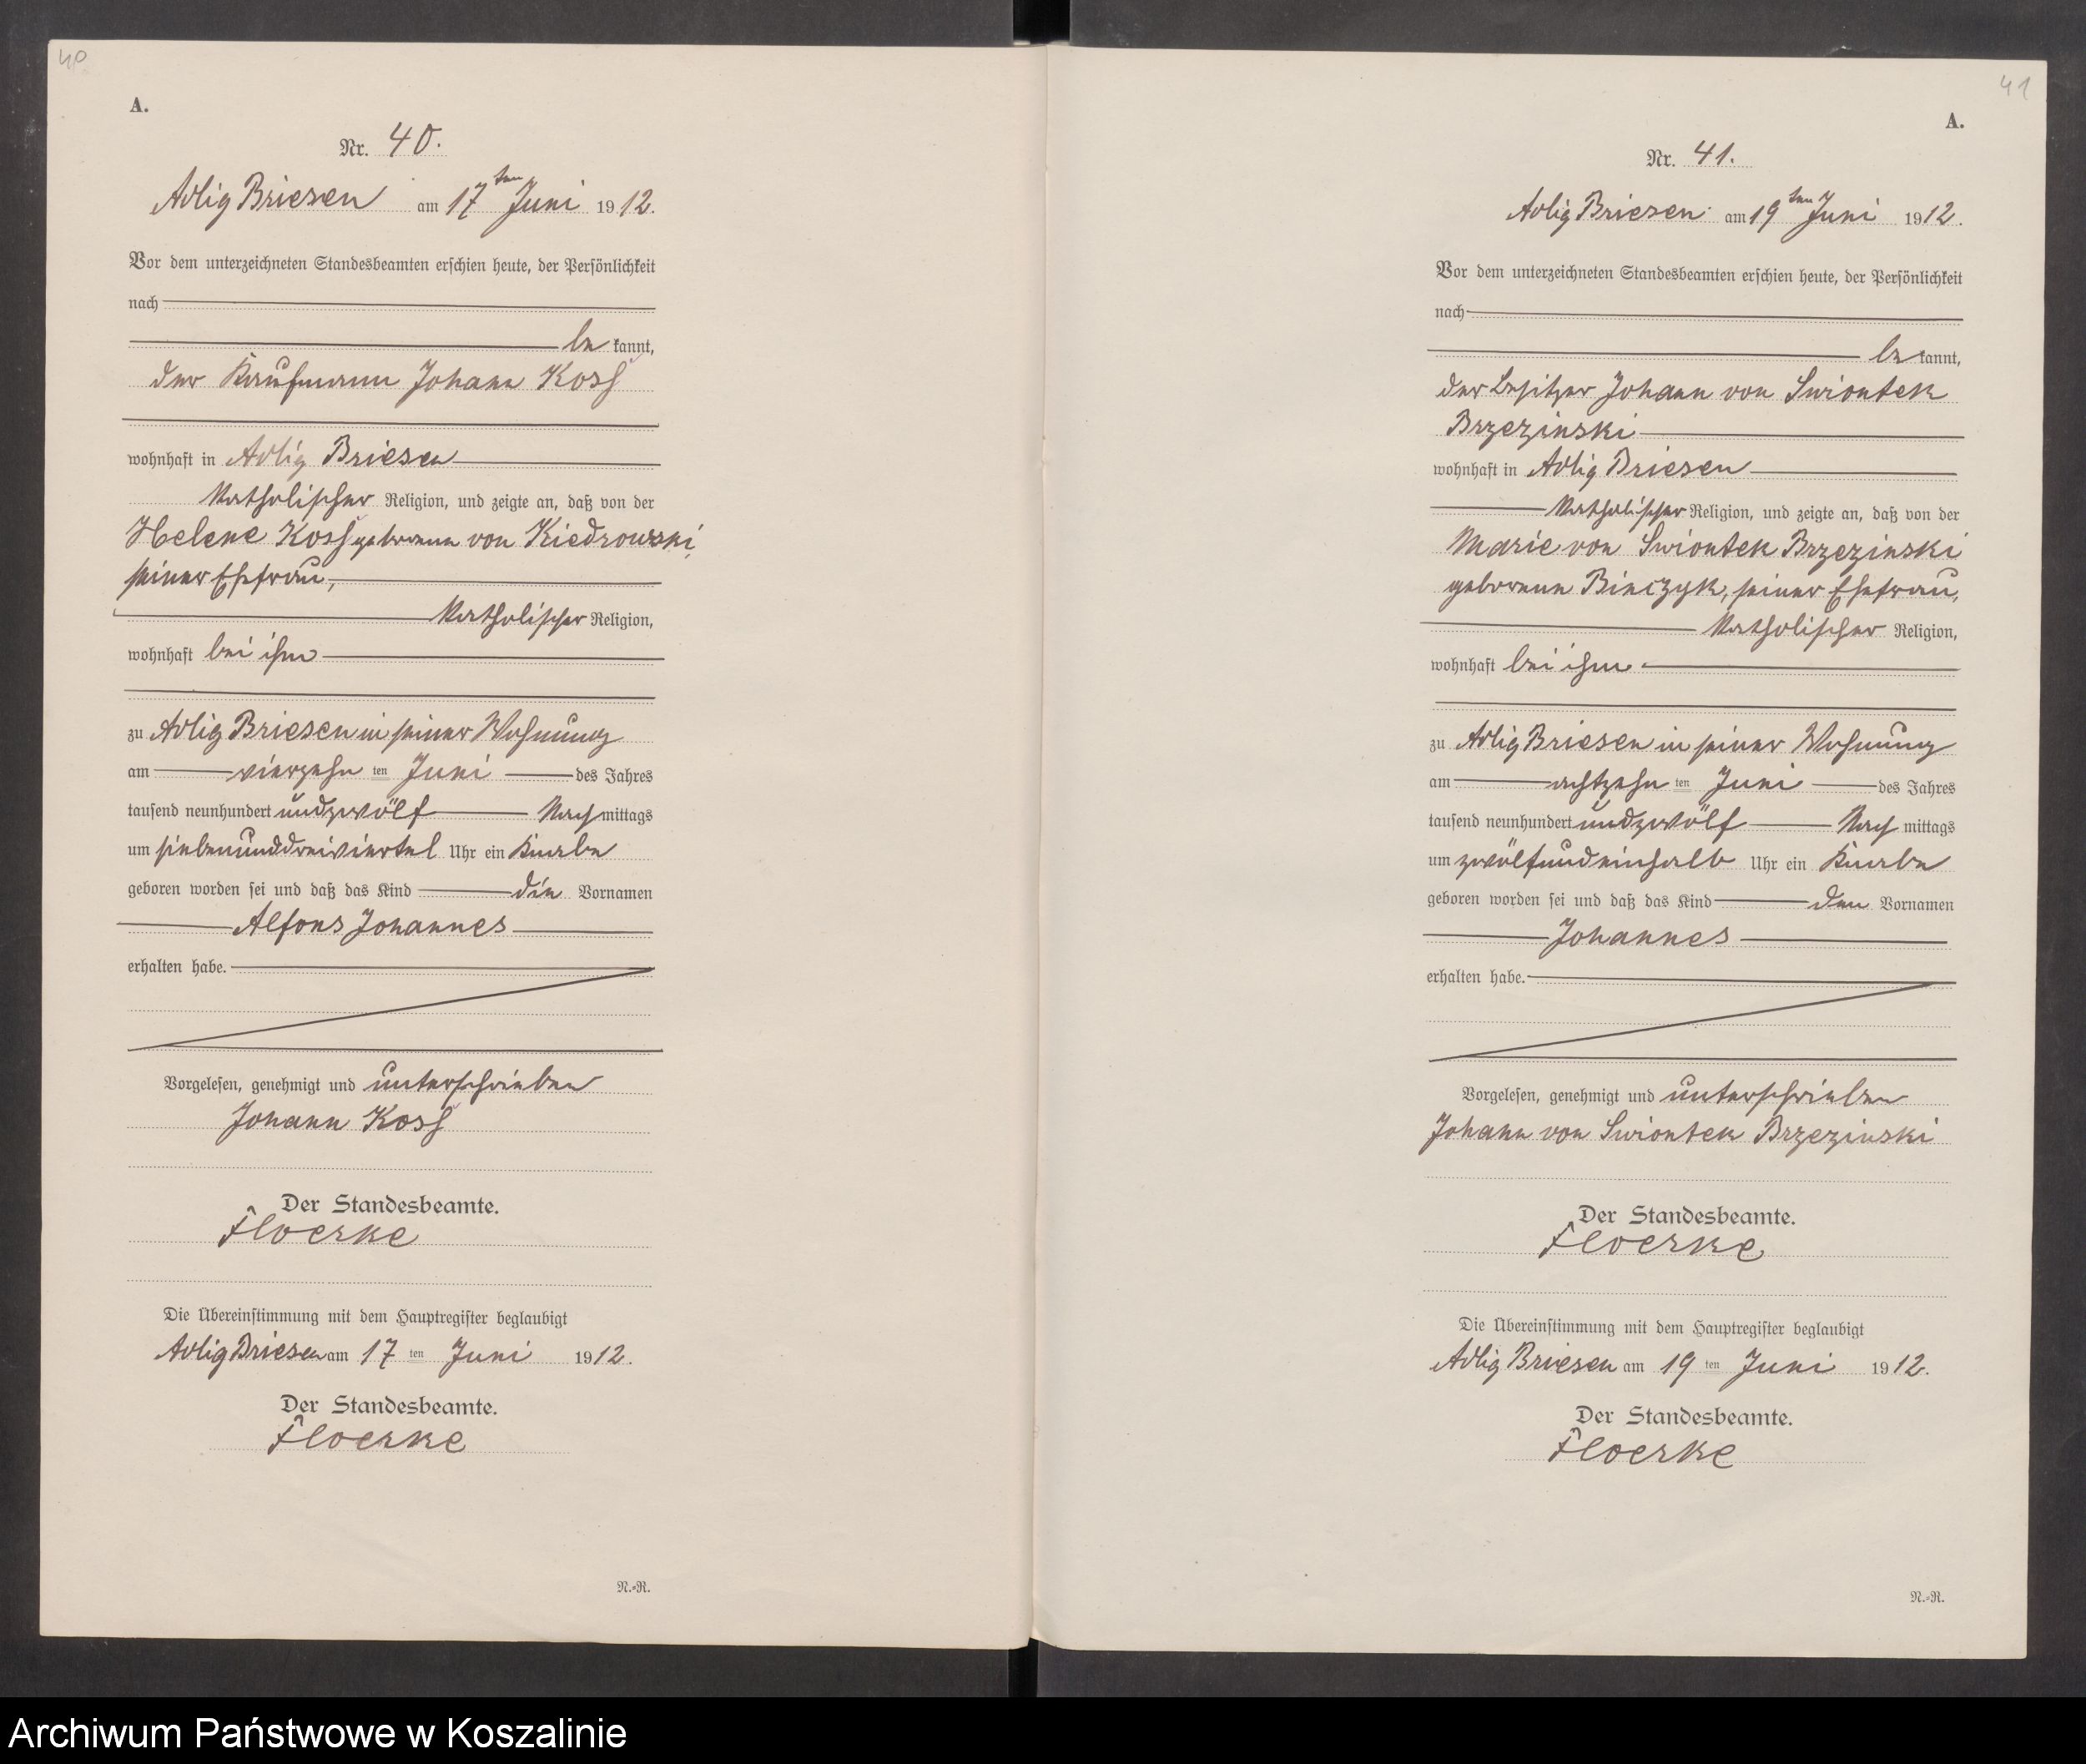 40
A.
Nr. 40.
Adlig Briesen am 17ten Juni 1912.
Vor dem unterzeichneten Standesbeamten erschien heute, der Persönlichkeit
nach
be kannt,
der Kaufmann Johann Koss
wohnhaft in Adlig Briesen
katholischer Religion, und zeigte an, daß von der
Helene Koss geborene von Kiedrowski,
seiner Ehefrau,
katholischer Religion,
wohnhaft bei ihm
zu Adlig Briesen in seiner Wohnung
am vierzehn ten Juni des Jahres
tausend neunhundert und zwölf Nach mittags
um siebenunddreiviertel Uhr ein Knabe
geboren worden sei und daß das Kind die Vornamen
Alfons Johannes
erhalten habe.
Vorgelesen, genehmigt und unterschrieben
Johann Koss
Der Standesbeamte.
Floerke
Die Übereinstimmung mit dem Hauptregister beglaubigt
Adlig Briesen am 17 ten Juni 1912.
Der Standesbeamte.
Floerke
N.-R.
41
A.
Nr. 41.
Adlig Briesen am 19ten Juni 1912.
Vor dem unterzeichneten Standesbeamten erschien heute, der Persönlichkeit
nach
be kannt,
der Besitzer Johann von Swiontek
Brzezinski
wohnhaft in Adlig Briesen
katholischer Religion, und zeigte an, daß von der
Marie von Swiontek Brzezinski
geborene Binczyk, seiner Ehefrau,
katholischer Religion,
wohnhaft bei ihm
zu Adlig Briesen in seiner Wohnung
am achtzehn ten Juni des Jahres
tausend neunhundert und zwölf Nach mittags
um zwölfundeinhalb Uhr ein Knabe
geboren worden sei und daß das Kind den Vornamen
Johannes
erhalten habe.
Vorgelesen, genehmigt und unterschrieben
Johann von Swiontek Brzezinski
Der Standesbeamte.
Floerke
Die Übereinstimmung mit dem Hauptregister beglaubigt
Adlig Briesen am 19 ten Juni 1912.
Der Standesbeamte.
Floerke
N.-R.
Archiwum Państwowe w Koszalinie